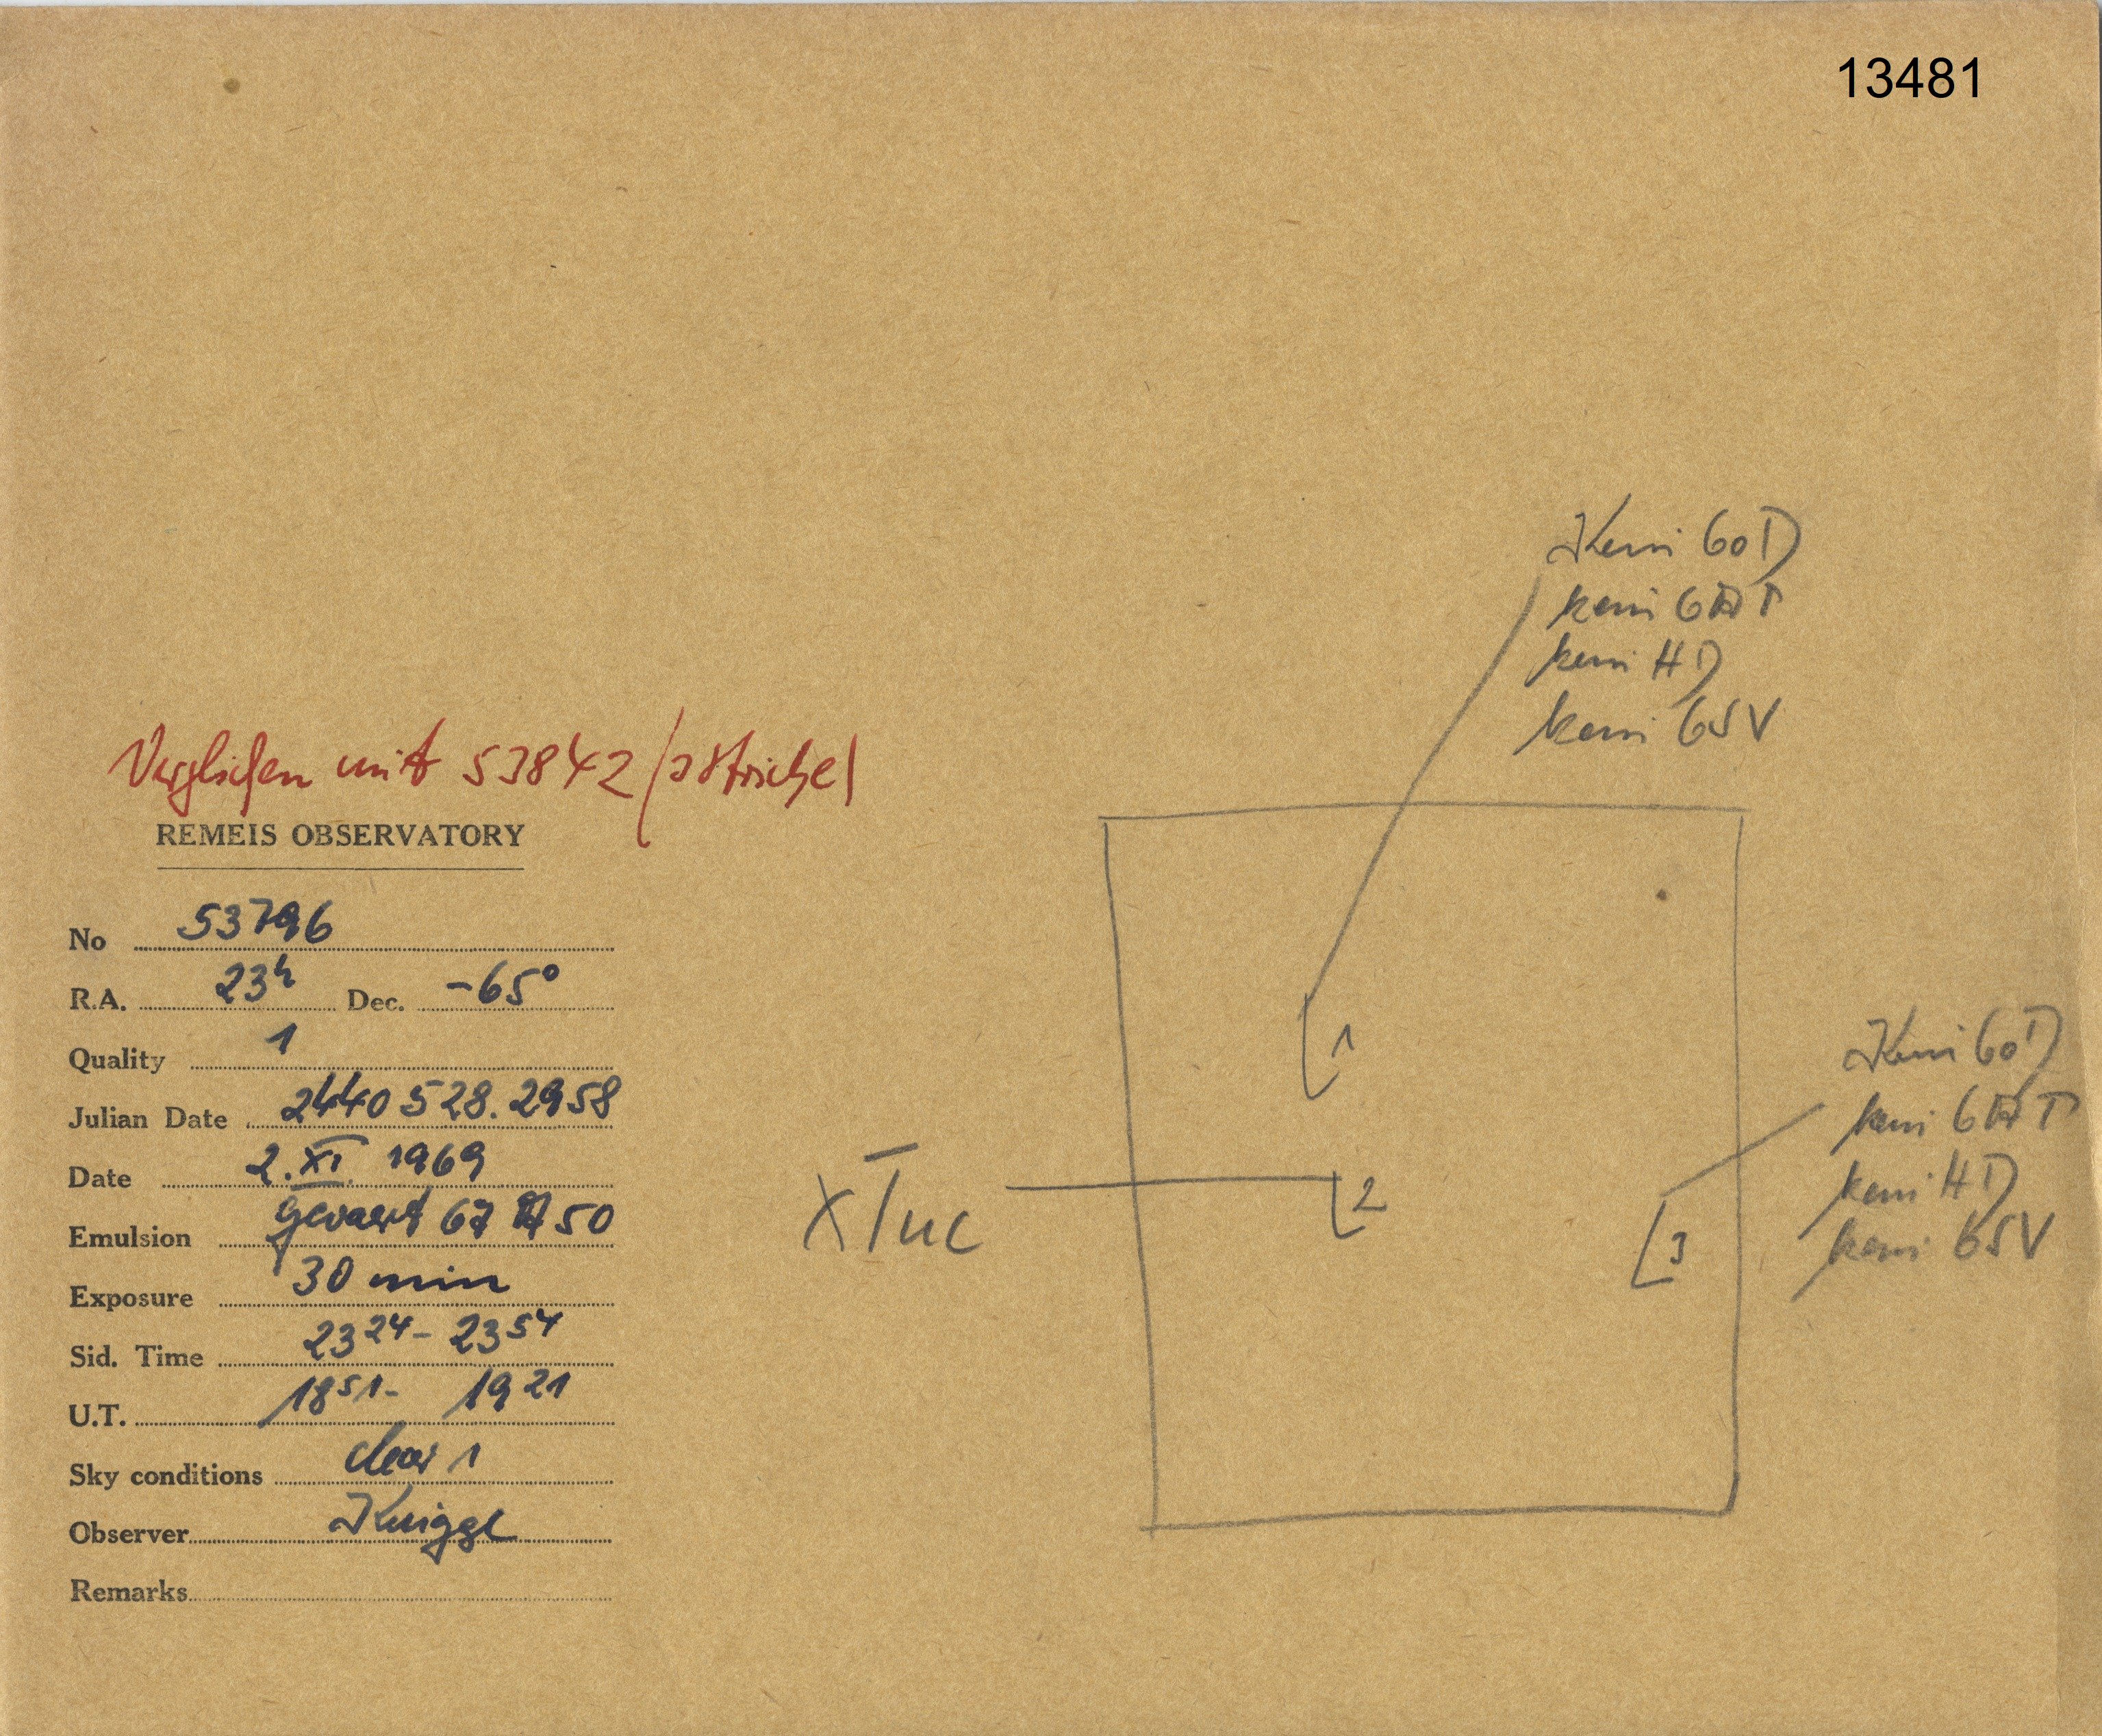 13481
Kein GoD
kein GART
kein HD
kein GSV
Verglichen mit 53842 (2 Striche)
REMEIS OBSERVATORY
No 53796
R.A. 23h Dec. -65°
Quality 1
Julian Date 2440 528.2958
Date 2. XI. 1969
Emulsion gevaert 67 50
Exposure 30 min
Sid. Time 23 24 - 23 54
U.T. 18 51 - 19 21
Sky conditions clear 1
Observer Knigge
Remarks
1
X Tuc
2
3
Kein
kein
kein HD
kein